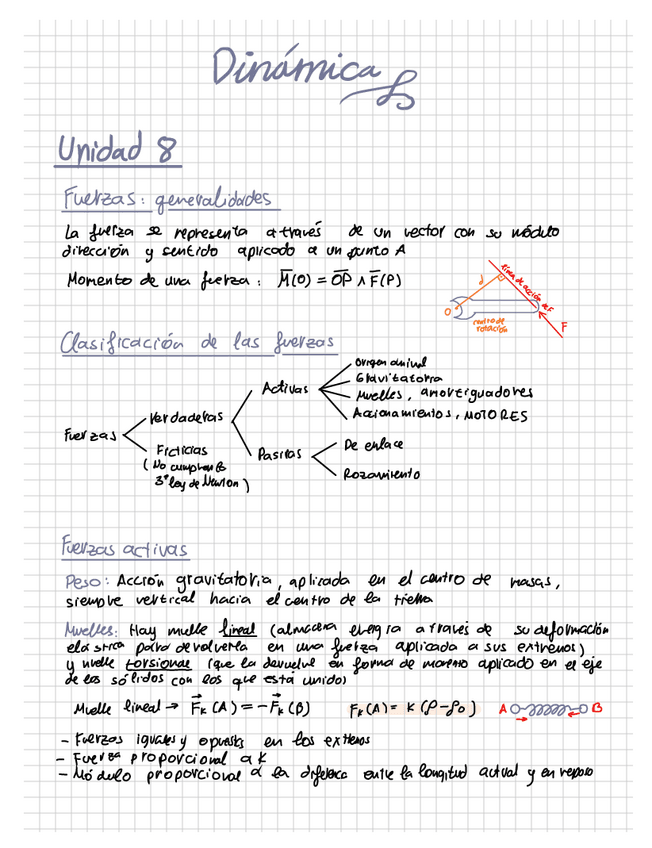 Dinámica
Unidad 8
Fuerzas: generalidades
La fuerza se representa a través de un vector con su módulo
dirección y sentido aplicado a un punto A
Momento de una fuerza: M̄(O) = ŌP̄ ∧ F̄(P)
línea de acción de F
d
O
centro de
rotación
F
Clasificación de las fuerzas
Fuerzas
Verdaderas
Ficticias
(No cumplen la
3ª ley de Newton)
Activas
Pasivas
Origen animal
Gravitatoria
Muelles, amortiguadores
Accionamientos, MOTORES
De enlace
Rozamiento
Fuerzas activas
Peso: Acción gravitatoria, aplicada en el centro de masas,
siempre vertical hacia el centro de la tierra
Muelles: Hay muelle lineal (almacena energía a través de su deformación
elástica para devolverla en una fuerza aplicada a sus extremos)
y muelle torsional (que la devuelve en forma de momento aplicado en el eje
de los sólidos con los que está unido)
Muelle lineal → F⃗ₖ(A) = -F⃗ₖ(B) Fₖ(A) = K(ρ-ρ₀) A B
- Fuerzas iguales y opuestas en los extremos
- Fuerza proporcional a K
- Módulo proporcional a la diferencia entre la longitud actual y en reposo